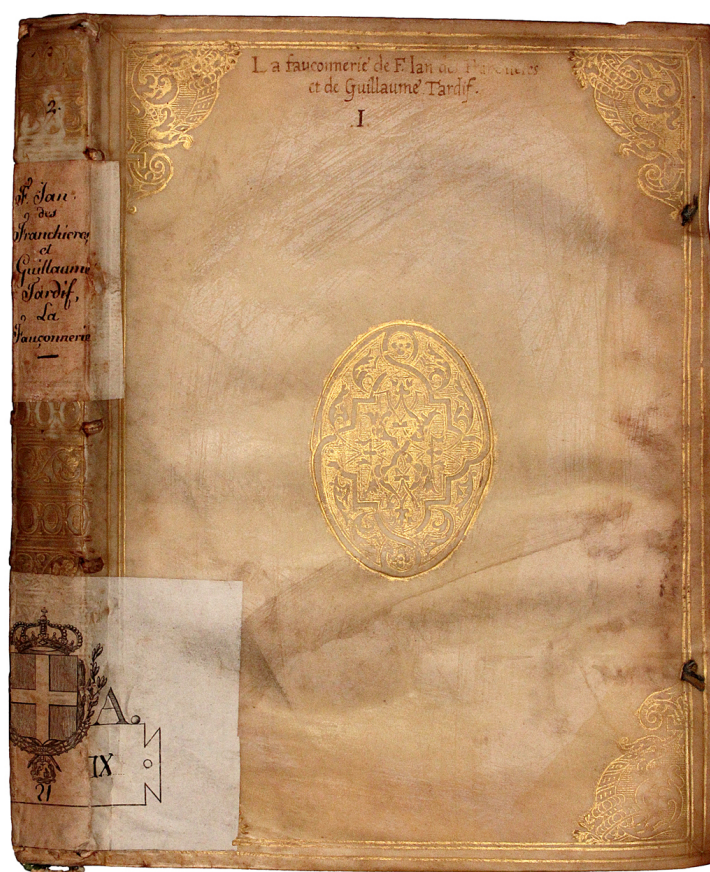 La fauconnerie de F. Ian des Franchieres
et de Guillaume Tardif.
.I.
2.
F. Jan
des
Franchieres
et
Guillaume
Tardif,
La
Fauconnerie
A.
IX
21